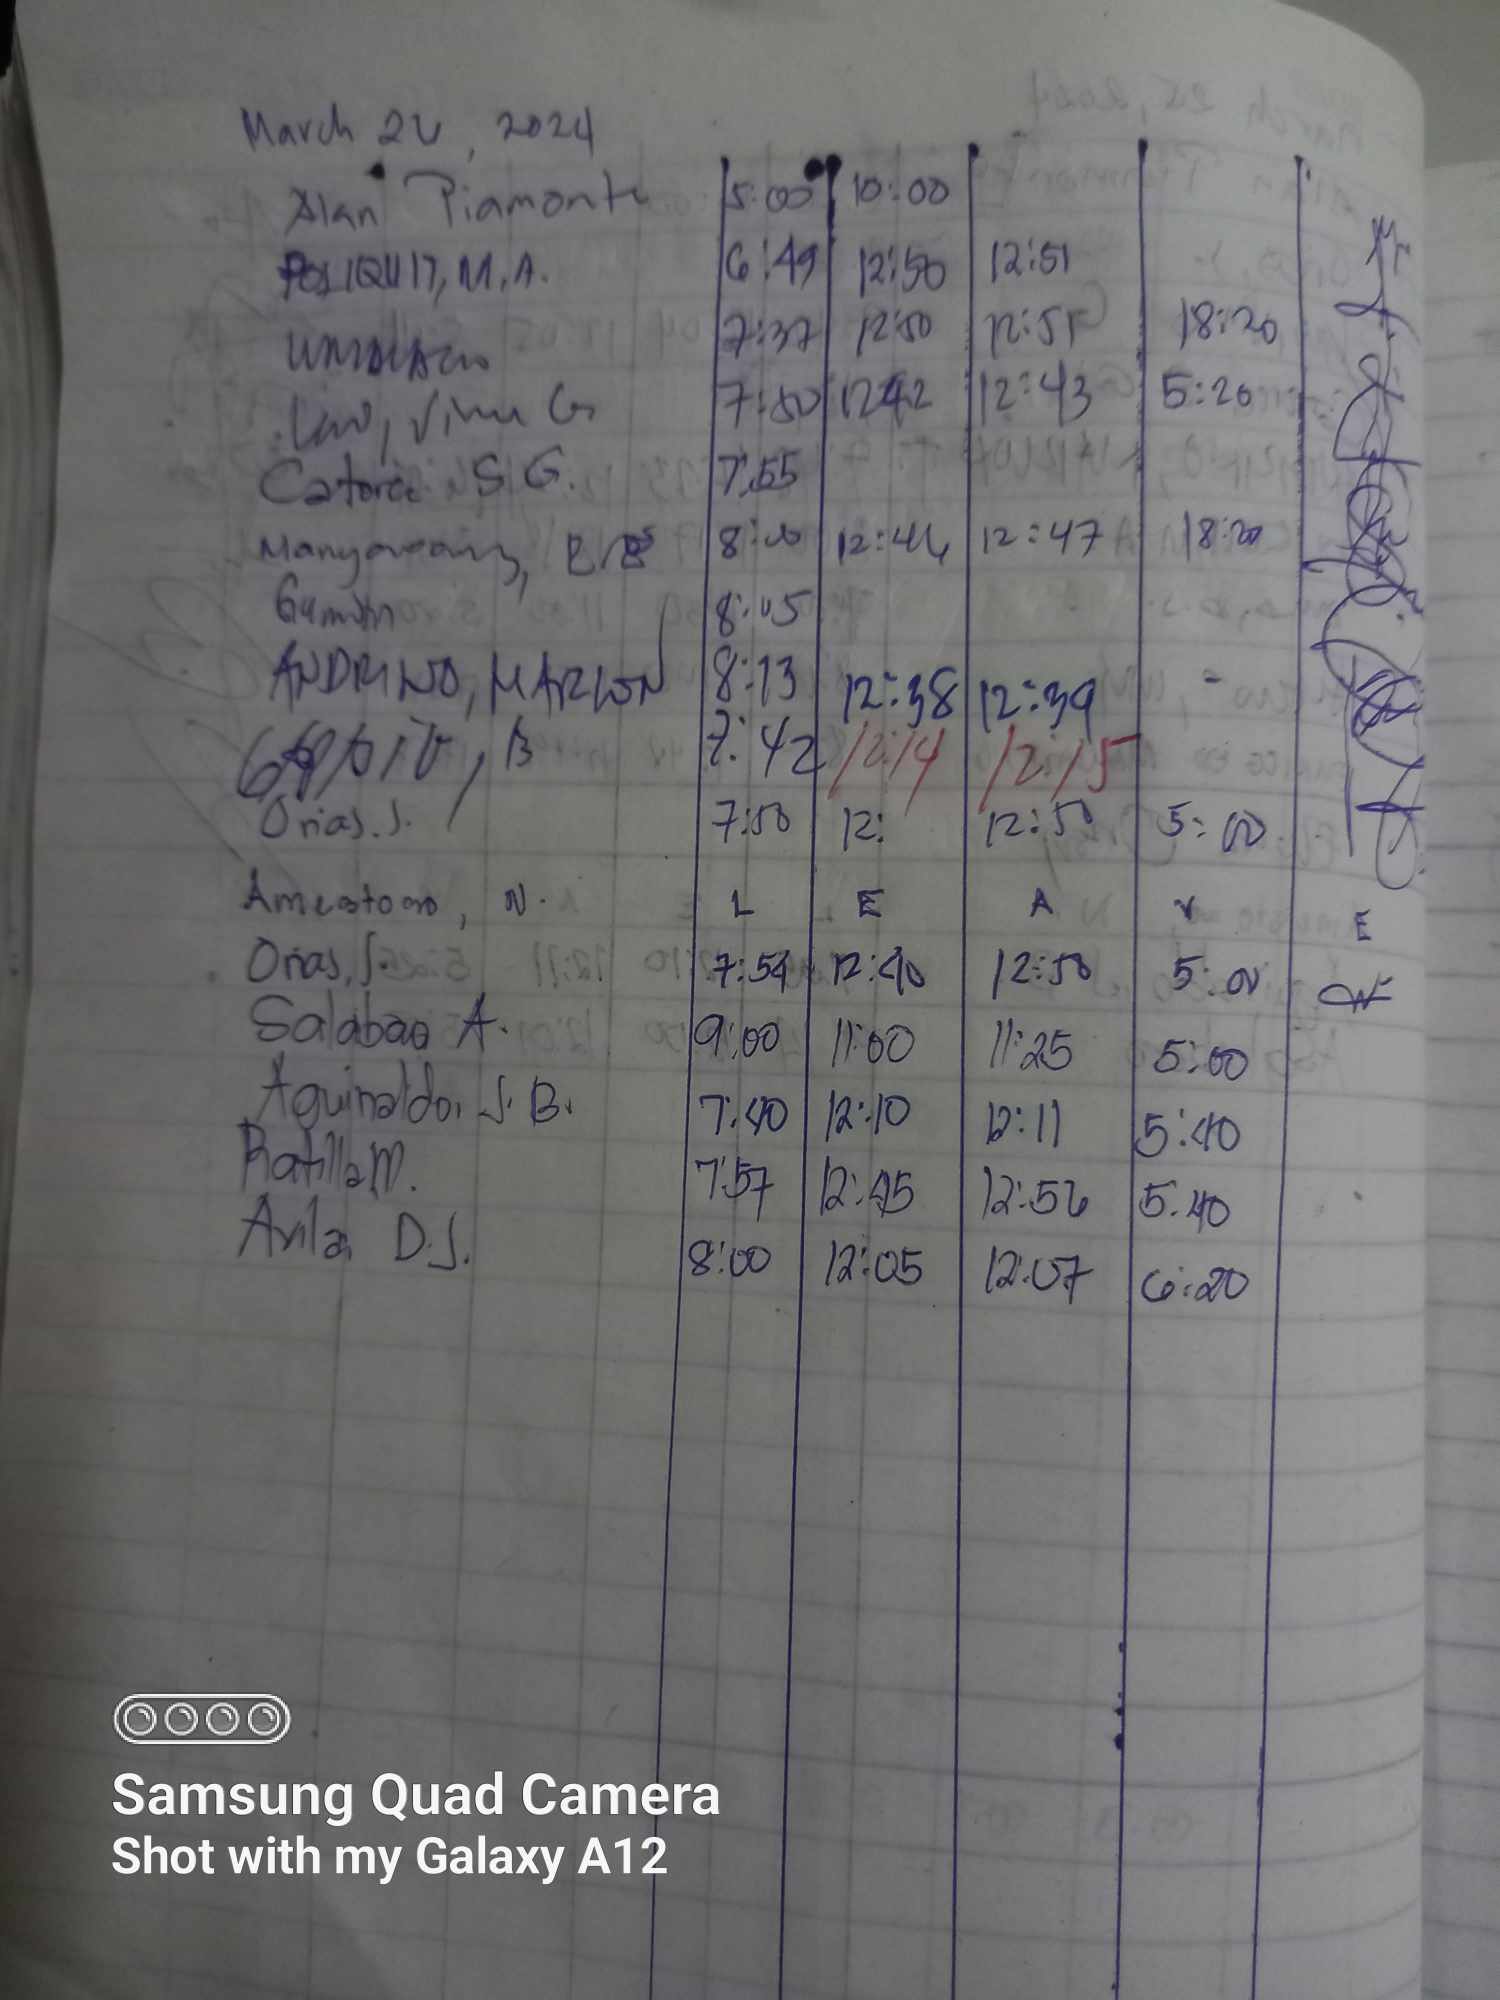 March 26, 2024
Alan Piamonte 5:00 10:00
POLIQUIT, M.A. 6:49 12:50 12:51
7:37 12:50 12:51 18:20
7:50 12:42 12:43 5:20
Catorce S.G. 7:55
8:00 12:46 12:47 18:20
8:05
ANDRINO, MARLON 8:13 12:38 12:39 -
B 7:42 12:14 12:15
Orias. J. 7:50 12: 12:50 5:00
N. L E A V E
Orias, J. 7:54 12:40 12:50 5:00
Salabao A. 9:00 11:00 11:25 5:00
Aguinaldo, J.B. 7:40 12:10 12:11 5:40
Ratilla M. 7:57 12:45 12:56 5:40
Avila, D.J. 8:00 12:05 12:07 6:20
Samsung Quad Camera
Shot with my Galaxy A12